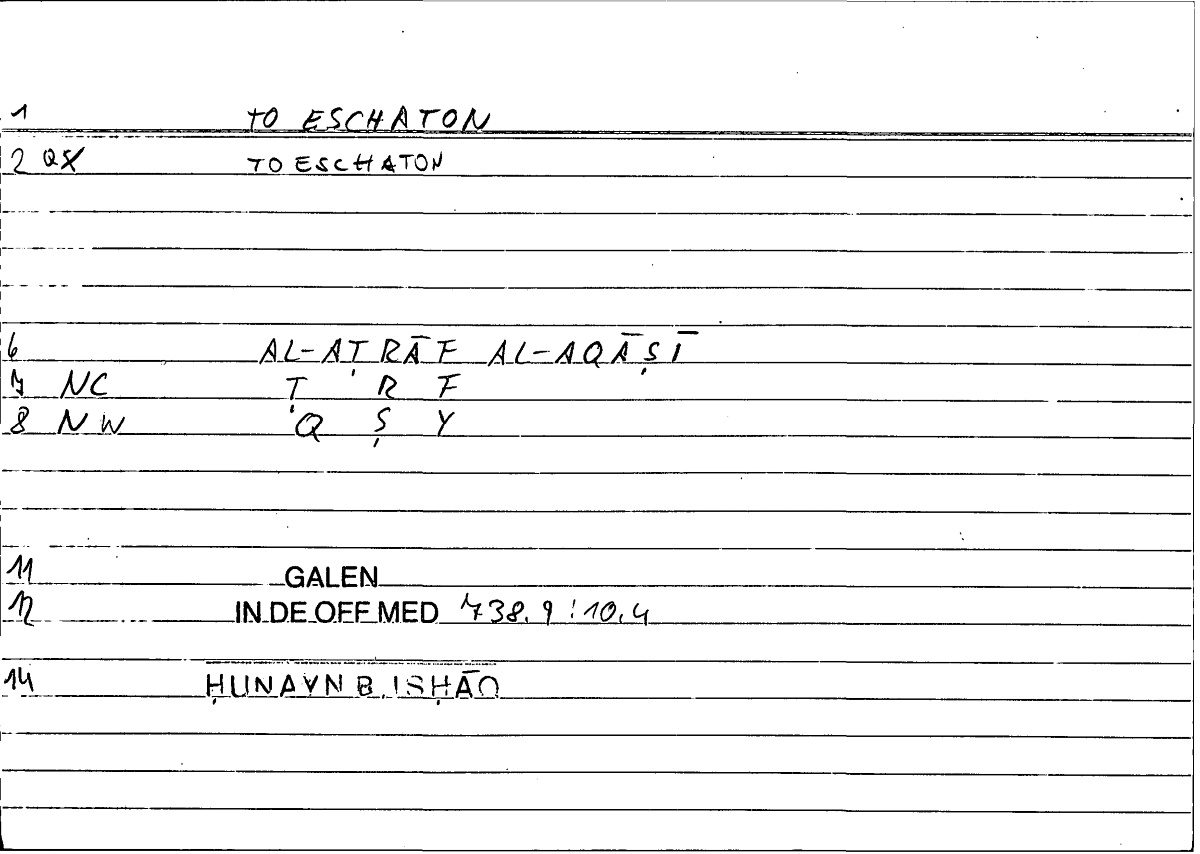 1 TO ESCHATON
2 QX TO ESCHATON
6 AL-AṬRĀF AL-AQĀṢĪ
7 NC Ṭ R F
8 NW Q Ṣ Y
11 GALEN
12 IN DE OFF MED 738.9:10.4
14 ḤUNAYN B. ISḤĀQ